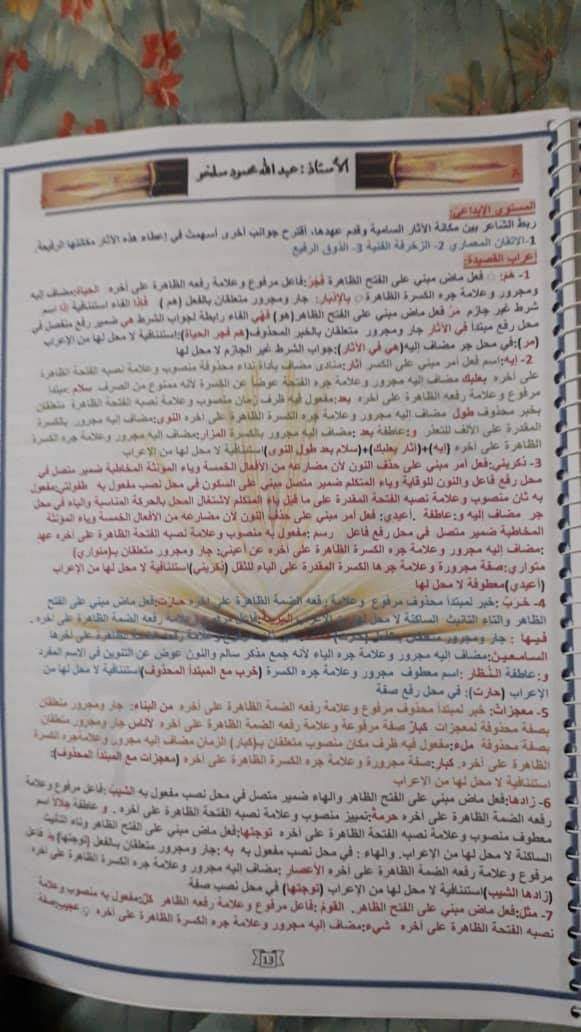 الأستاذ : عبد الله محمود سلخو
المستوى الإبداعي:
ربط الشاعر بين مكانة الآثار السامية وقدم عهدها، أقترح جوانب أخرى أسهمت في إعطاء هذه الآثار مكانتها الرفيعة.
1-الاتقان المعماري 2- الزخرفة الفنية 3- الذوق الرفيع
أعراب القصيدة:
1- هَمَّ: فعل ماض مبني على الفتح الظاهرة فجرُ:فاعل مرفوع وعلامة رفعه الظاهرة على أخره الحياة:مضاف إليه
ومجرور وعلامة جره الكسرة الظاهرة بالإدبار: جار ومجرور متعلقان بالفعل (هم ) فإذا الفاء استئنافية إذا اسم
شرط غير جازم مرّ فعل ماض مبني على الفتح الظاهر(هو) فهي الفاء رابطة لجواب الشرط هي ضمير رفع منفصل في
محل رفع مبتدا في الآثار جار ومجرور متعلقان بالخبر المحذوف(هم فجر الحياة):إستئنافية لا محل لها من الإعراب
(مر):في محل جر مضاف إليه(هي في الآثار):جواب الشرط غير الجازم لا محل لها
2- إيه:اسم فعل أمر مبني على الكسر آثار:منادى مضاف بأداة نداء محذوفة منصوب وعلامة نصبه الفتحة الظاهرة
على أخره بعلبك مضاف إليه مجرور وعلامة جره الفتحة عوضاً عن الكسرة لأنه ممنوع من الصرف سلام :مبتدا
مرفوع وعلامة رفعه الظاهرة على أخره بعد:مفعول فيه ظرف زمان منصوب وعلامة نصبه الفتحة الظاهرة متعلقان
بخبر محذوف طول مضاف إليه مجرور وعلامة جره الكسرة الظاهرة على اخره النوى:مضاف إليه مجرور بالكسرة
المقدرة على الألف للتعذر و:عاطفة بعد :مضاف إليه مجرور بالكسرة المزار:مضاف إليه مجرور وعلامة جره الكسرة
الظاهرة على أخره (إيه)+(آثار بعلبك)+(سلام بعد طول النوى)استئنافية لا محل لها من الإعراب
3- ذكريني:فعل أمر مبني على حذف النون لأن مضارعه من الأفعال الخمسة وياء المؤنثة المخاطبة ضمير متصل في
محل رفع فاعل والنون للوقاية وياء المتكلم ضمير متصل مبني على السكون في محل نصب مفعول به طفولتي:مفعول
به ثان منصوب وعلامة نصبه الفتحة المقدرة على ما قبل ياء المتكلم لاشتغال المحل بالحركة المناسبة والياء في محل
جر مضاف إليه و:عاطفة .أعيدي: فعل أمر مبني على حذف النون لأن مضارعه من الأفعال الخمسة وياء المؤنثة
المخاطبة ضمير متصل في محل رفع فاعل رسم :مفعول به منصوب وعلامة نصبه الفتحة الظاهرة على أخره عهد
:مضاف إليه مجرور وعلامة جره الكسرة الظاهرة على أخره عن أعيني: جار ومجرور متعلقان بـ(متواري)
متواري:صفة مجرورة وعلامة جرها الكسرة المقدرة على الياء للثقل (ذكريني)استئنافية لا محل لها من الإعراب
(أعيدي)معطوفة لا محل لها
4- خـربٌ: خبر لمبتدأ محذوف مرفوع وعلامة رفعه الضمة الظاهرة على أخره حـارت:فعل ماض مبني على الفتح
الظاهر والتاء التانيث الساكنة لا محل لها من الإعراب فاعل مرفوع وعلامة رفعه الضمة الظاهرة على أخره .
فيـها : جار ومجرور متعلقان بالفعل
السامعـين:مضاف إليه مجرور وعلامة جره الياء لأنه جمع مذكر سالم والنون عوض عن التنوين في الاسم المفرد
و: عاطفة النُـظار :اسم معطوف مجرور وعلامة جره الكسرة (خرب مع المبتدأ المحذوف)استئنافية لا محل لها من
الإعراب (حارت): في محل رفع صفة
5- معجزاتٌ: خبر لمبتدأ محذوف مرفوع وعلامة رفعه الضمة الظاهرة على أخره من البناء: جار ومجرور متعلقان
بصفة محذوفة لمعجزات كبارٌ صفة مرفوعة وعلامة رفعه الضمة الظاهرة على أخره لأناس جار ومجرور متعلقان
بصفة محذوفة ملء:مفعول فيه ظرف مكان منصوب متعلقان بـ(كبار) الزمان مضاف إليه مجرور وعلامةجره الكسرة
الظاهرة على أخره. كبار:صفة مجرورة وعلامة جره الكسرة الظاهرة على أخره (معجزات مع المبتدأ المحذوف):
استئنافية لا محل لها من الإعراب
6- زادها:فعل ماض مبني على الفتح الظاهر والهاء ضمير متصل في محل نصب مفعول به الشيبُ :فاعل مرفوع وعلامة
رفعه الضمة الظاهرة على أخره حرمة:تمييز منصوب وعلامة نصبه الفتحة الظاهرة على أخره . و عاطفة جلالاً اسم
معطوف منصوب وعلامة نصبه الفتحة الظاهرة على أخره توجتها:فعل ماض مبني على الفتح الظاهر وتاء التانيث
الساكنة لا محل لها من الإعراب. والهاء : في محل نصب مفعول به به :جار ومجرور متعلقان بالفعل (توجتها) يد فاعل
مرفوع وعلامة رفعه الضمة الظاهرة على أخره الأعصار :مضاف إليه مجرور وعلامة جره الكسرة الظاهرة على أخره
(زادها الشيب)استئنافية لا محل لها من الإعراب (توجتها) في محل نصب صفة
7- مثل:فعل ماض مبني على الفتح الظاهر. القوم :فاعل مرفوع وعلامة رفعه الظاهر كلّ:مفعول به منصوب وعلامة
نصبه الفتحة الظاهرة على أخره شيء:مضاف إليه مجرور وعلامة جره الكسرة الظاهرة على أخره عجيب:صفة
13